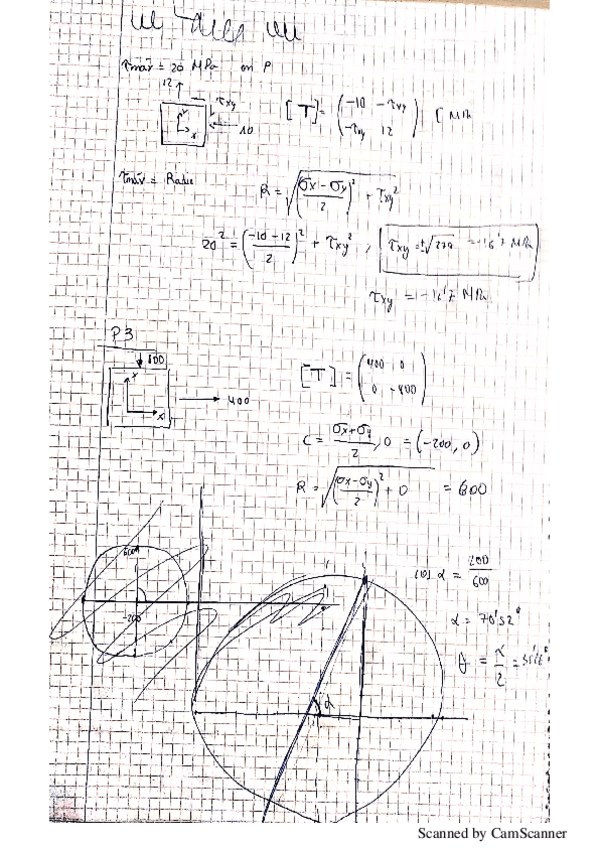 τmáx = 20 MPa en P
12
τxy
y
x
10
[T] = (-10 -τxy
-τxy 12) [MPa
τmáx = Radio
R = √((σx-σy)/2)² + τxy²
20² = ((-10-12)/2)² + τxy² , τxy = ±√279 = -16'7 MPa
τxy = -16'7 MPa
P3
800
400
x
[T] = (400 0
0 -800)
C = (σx+σy)/2, 0 = (-200, 0)
R = √((σx-σy)/2)² + 0 = 600
600
-200
cos α = 200/600
α = 70'52°
θ = α/2 =
α
Scanned by CamScanner